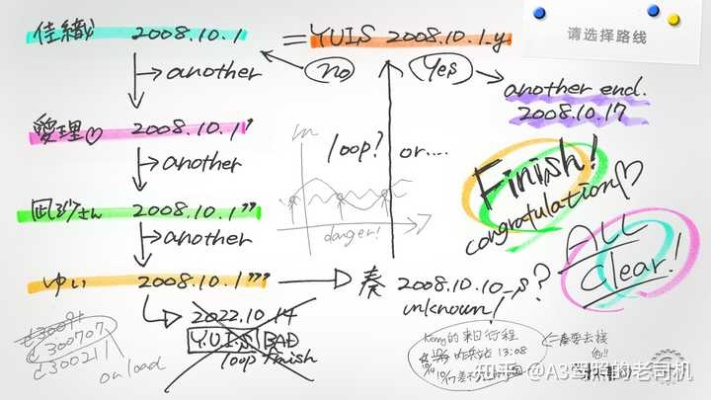 请选择路线
佳織 2008.10.1 = YUIS 2008.10.1_y
another
no
Yes
another end.
2008.10.17
愛理♡ 2008.10.1"
another
loop?
or....
Finish!
congratulation♡
凪沙さん 2008.10.1"'
another
danger!
ALL
Clear!
ゆい 2008.10.1""
奏 2008.10.10_s?
unknown!
2022.10.14
Y.U.I.S BAD
loop finish
c300707
c300211
onload
的来日行程
13:08
秦要去接
知乎 @A3驾照的老司机